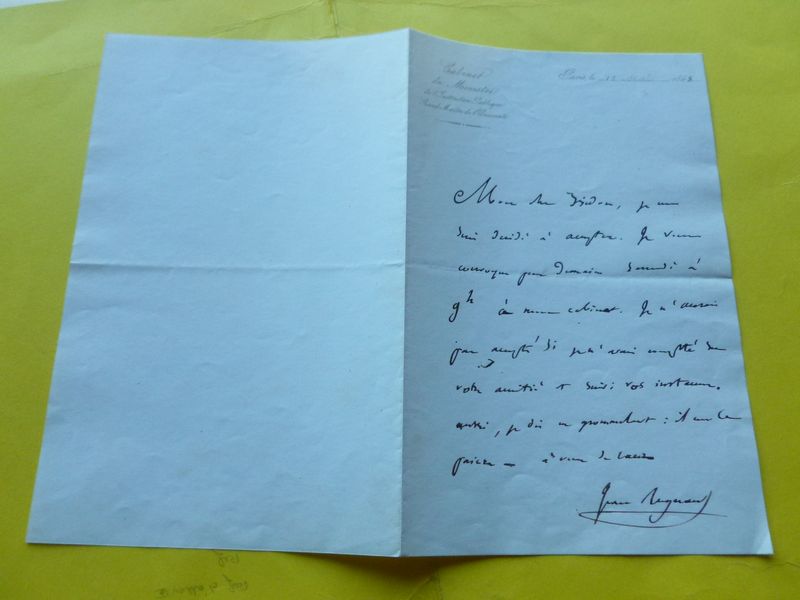 Cabinet
du Ministre
de l'Instruction Publique
Grand Maître de l'Université
Paris, le 12 184
Mon cher Bixdou, je me
suis décidé à accepter. Je vous
convoque pour Demain Samedi à
9h à mon cabinet. Je n'aurais
pas accepté si je n'avais compté sur
votre amitié et suivi vos instances.
aussi, je dis en gromelant : il me le
paiera — à vous de coeur
Jean Reynaud